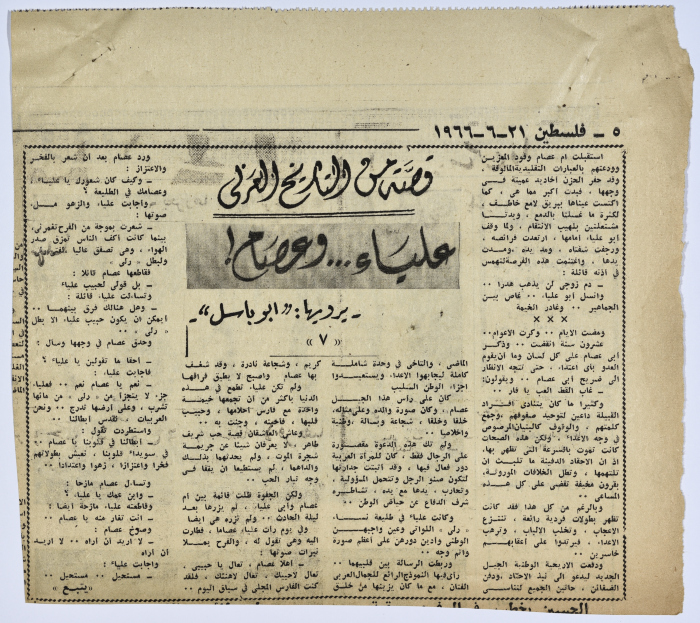 ٥ ــ فلسطين ٢١-٦-١٩٦٦
قصة من التاريخ العربي
علياء... وعصام!
ـ يرويها: "ابو باسل" ـ
« ٧ »
استقبلت ام عصام وفود المعزين
وودعتهم بالعبارات التقليدية المألوفة
وقد حفر الحزن اخاديد عميقة في
وجهها ، فبدت اكبر مما هي ، كما
اكتست عيناها ببريق لامع خاطف ،
لكثرة ما غسلتا بالدمع ، وبدتا
مشتعلتين بلهيب الانتقام ، ولما وقف
ابو علياء امامها ، ارتعدت فرائصه ،
ورجفت شفتاه ، ومد يده ومدت
يدها ، واغتنمت هذه الفرصة لتهمس
في اذنه قائلة :
ــ دم زوجي لن يذهب هدرا ..
وانسل ابو علياء .. وغاص بين
الجماهير .. وغادر الخيمة
× × ×
ومضت الايام .. وكرت الاعوام ..
عشرون سنة انقضت .. وذكر
ابي عصام على كل لسان وما ان يقوم
العدو بأي اعتداء ، حتى تتجه الانظار
الى ضريح ابي عصام .. ويقولون:
ــ غاب القط العب يا فار ..
وكثيرا ما كان يتنادى افراد
القبيلة داعين لتوحيد صفوفهم ، وجمع
كلمتهم ، والوقوف كالبنيان المرصوص
في وجه الاعداء .. ولكن هذه الصيحات
كانت تموت بالسرعة التي تظهر بها،
اذ ان الاحقاد الدفينة ما تلبث ان
تلتهمها ، وتظل الخلافات الموروثة،
بقرون مخيفة تقضي على كل
المساعي ..
وبالرغم من كل هذا فقد كانت
تظهر بطولات فردية رائعة ، تنتزع
الاعجاب ، وتخلب الالباب ، وترهب
الاعداء، فيرتدوا على اعقابهم
خاسرين ..
ودفعت الاريحية الوطنية الجيل
الجديد ليدعو الى نبذ الاحقاد، ودفن
الضغائن ، حاثين الجميع لتناسي
الماضي ، والتآخي في وحدة شاملة
كاملة ليجابهوا الاعداء، ويستعيدوا
اجزاء الوطن السليب
كان على رأس هذا الجيل
عصام ، وكان صورة والده وعلى مثاله،
خلقا وخلقا ، شجاعة وبسالة ، وطنية
واخلاصا ..
ولم تك هذه الدعوة مقصورة
على الرجال فقط ، كان للمرأة العربية
دور فعال فيها ، وقد اثبتت جدارتها
لتكون صنو الرجل وتتحمل المسؤولية،
وتحارب ، يدها مع يده ، تشاطره
شرف الدفاع عن حياض الوطن ..
وكانت علياء في طليعة نساء
« رلى » اللواتي وعين واجبهن
الوطني وادين دورهن على اعظم صورة
واتم وجه ..
وربطت الرسالة بين قلبيهما ..
رأى فيها النموذج الرائع للجمال العربي
الفتان ، مع ما كان يزينها من خلق
كريم ، وشجاعة نادرة ، وقد شغف
بها عصام واصبح لا يطيق فراقها
ولم تكن علياء تطمع في هذه
الدنيا باكثر من ان تجمعها خيمة
واحدة مع فارس احلامها ، وحبيب
قلبها ، فأحبته ، وجنت به ..
وعاش العاشقان قصة حب شريف
طاهر، لا يعرفان شيئا عن جريمة
شجرة الموت ، ولم يحدثهما بذلك
والداهما ، لم يستطيعا ان يقفا في
وجه تيار الحب ..
ولكن الجفوة ظلت قائمة بين ام
عصام وأبي علياء ، لم يزرها بعد
ليلة الحادث .. ولم تزره هي ايضا
وفي يوم رأت علياء عصاما ، فطارت
اليه وهي تقول له ، والفرح يملا
نبرات صوتها :
ــ اهلا عصام ، تعال يا حبيبي
تعال لاحييك ، تعال لاهنئك ، فلقد
كنت الفارس المجلى في سباق اليوم ..
ورد عصام بعد ان شعر بالفخر
والاعتزاز :
ــ وكيف كان شعورك يا علياء ،
وعصامك في الطليعة ؟
واجابت علياء ، والزهو مل.
صوتها :
ــ شعرت بموجة من الفرح تغمرني،
بينما كانت اكف الناس تمزق صدر
الهواء ، وهي تصفق عاليا
ولبطل « رلى »
فقاطعها عصام قائلا :
ــ بل قولي لحبيب علياء
وتساءلت علياء قائلة :
ــ وهل هنالك فرق بينهما ..
ايمكن ان يكون حبيب علياء الا بطل
« رلى » ..
وحدق عصام في وجهها وسأل :
ــ احقا ما تقولين يا علياء ؟
فأجابت علياء :
ــ نعم يا عصام نعم .. فعلياء
جزء لا يتجزأ من « رلى » من مائها
تشرب ، وعلى ارضها تدرج .. ونحن
العربيات ، نقدس ابطالنا ..
واستطردت تقول :
ــ ابطالنا في قلوبنا يا عصام ..
في سويداء قلوبنا ، نعيش بطولاتهم
فخرا واعتزازا ، زهوا واعتدادا ..
وتساءل عصام مازحا :
ــ واين عمك يا علياء ؟
وقاطعته علياء مازحة ايضا :
ــ انت تغار منه يا عصام ..
وصوخ عصام :
ــ لا اريد ان أراه .. لا اريد
ان اراه
واجابت علياء :
ــ مستحيل .. مستحيل ..
« يتبع »